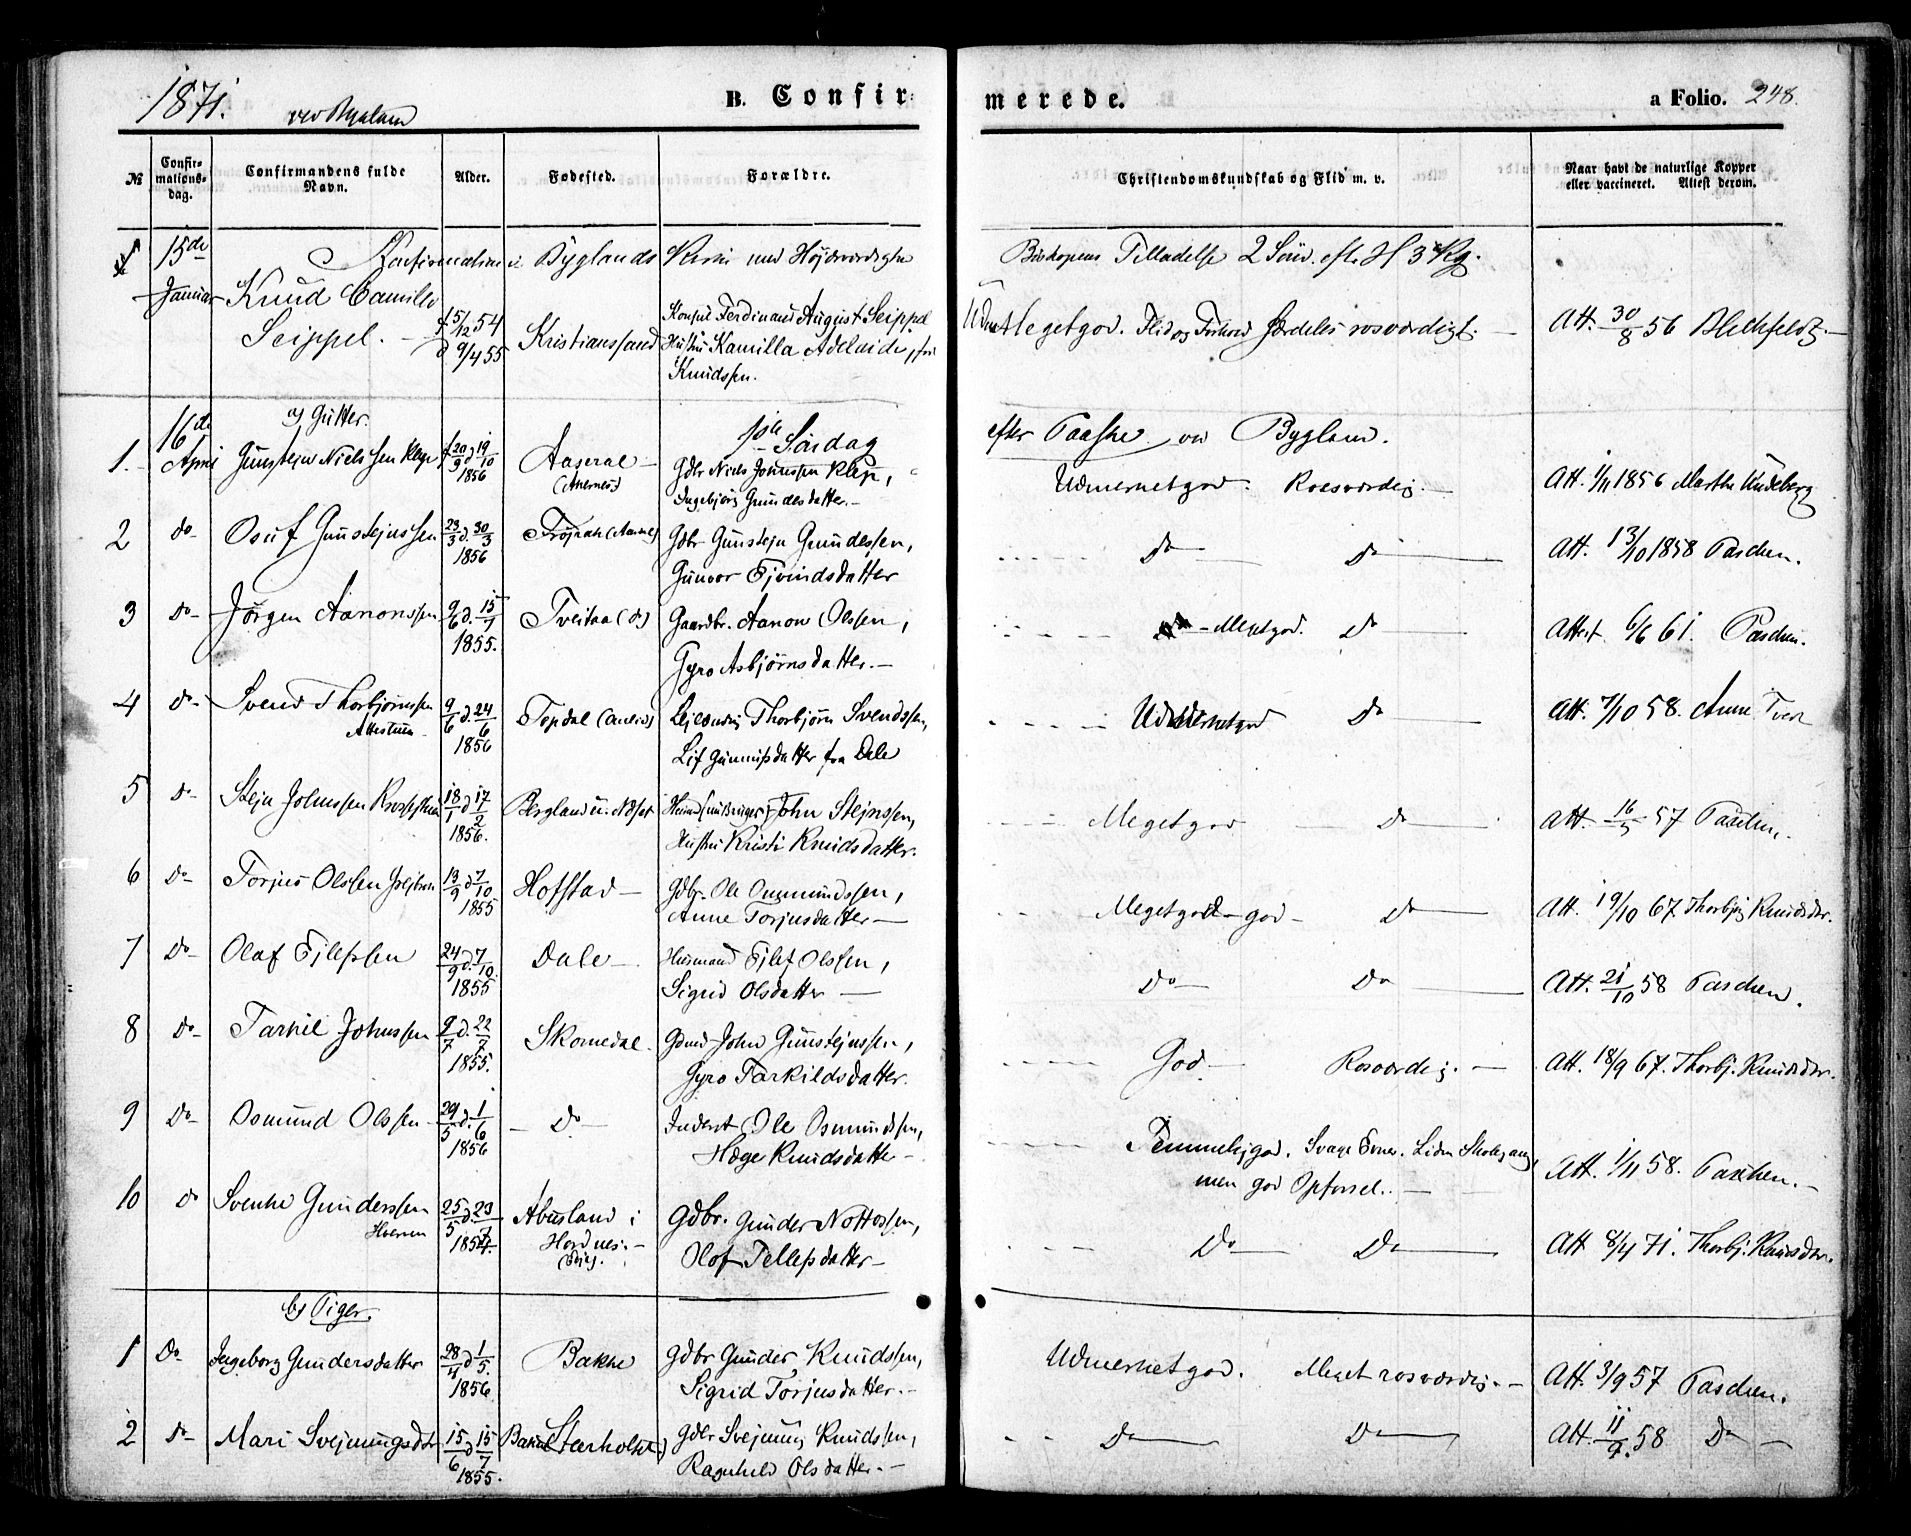 1871. ved Bygland
B. Confir-
merede.
a Folio. 248.
№
Confir-
mations-
dag.
Confirmandens fulde
Navn.
Alder.
Fødested.
Forældre.
Christendomskundskab og Flid m. v.
Naar havt de naturlige Kopper
eller vaccineret. Attest derom.
15de Konfirmation i Byglands Kirke med Højærværdighe Biskopens Tilladelse 2 Sönd. eft. H 3 Kg.
1 Januar Knud Camillo
Seippel. f 15/12 54
d 9/4 55
Kristianssand
Konsul Ferdinand August Seippel
Hustru Kamilla Adelaide, født
Knudssen.
Udm. Megetgod. Flid og Forhold Særdeles rosværdigt.
Att. 30/8 56
16de a) Gutter. 1ste Söndag efter Paaske ved Bygland.
1. April Gunstejn Nielssen Klep f 20/9 d 19/10
1856
Aaseral
Gdbr Niels Johnssen Klep,
Ingebjörg Gundesdatter.
Udmerketgod. Rosværdig.
Att. 1/11 1856 Marthe Undeberg
2 do Osuf Gunstejnssen 23/3 d. 30/3
1856
Gdbr Gunstejn Gundessen,
Gunvor Ejvindsdatter
Do Do
Att. 13/10 1858 Paschen.
3 Do Jörgen Aanonssen 9/6 d. 15/7
1855.
Tveitaa (do)
Gaardbr. Aanon Olssen,
Gyro Asbjørnsdatter.
Megetgod. Do
Attest 6/6 61. Paschen.
4 Do Svend Thorbjörnssen 9/6 d. 24/6
1856
Topdal
Thorbjörn Svendssen,
Lif Gunnufsdatter fra Dale
Udmerketgod Do
Att. 7/10 58. Anne Tveit
5 Do Stejn Johnssen 18/1 d 17/2
1856.
Bergland u. Neset
John Stejnssen,
Hustru Kristi Knudsdatter.
Megetgod Do
Att. 16/5 57 Paschen.
6 Do Torjus Olssen 13/9 d 7/10
1855
Hofstad
Gdbr. Ole Gunmundssen,
Anne Torjusdatter
Megetgod-god Do
Att. 19/10 67. Thorbjg Knudsdtr.
7 Do Olaf Ejlefssen 24/9 d. 7/10.
1855
Dale
Husmand Ejlef Olssen,
Sigrid Olsdatter
Do Do
Att. 21/10 58 Paschen.
8 Do Tarkil Johnssen 9/7 d. 22/7
1855.
Skomedal
Gdmd John Gunstejnssen,
Gyro Tarkildsdatter.
God Rosværdig.
Att. 18/9 67. Thorbj. Knudsdtr.
9 Do Osmund Olssen 29/5 d. 1/6
1856
Do
Inderst Ole Osmundssen,
Hæge Knudsdatter
Temmeligod. Svage Evner. Liden Skolegang,
men god Opførsel.
Att. 1/11 58. Paschen.
10 do Svenke Gunderssen
25/5 d. 23/7
1854.
Abusland i
Hordnes.
Gdbr. Gunder Nottossen,
Olof Tellefsdatter
Do Do
Att 8/4 71. Thorbj. Knudsdtr.
b) Piger.
1 Do Ingeborg Gundersdatter 28/4 d 1/5.
1856
Bakke
Gdbr Gunder Knudssen,
Sigrid Torjusdatter.
Udmerketgod. Meget rosværdig.
Att. 3/9 57 Paschen.
2 Do Mari Svejnungsdtr 15/6 d 15/7
1855.
Gdbr Svejnung Knudssen,
Ragnhild Olsdatter.
Do Do
Att. 11/9. 58 Do